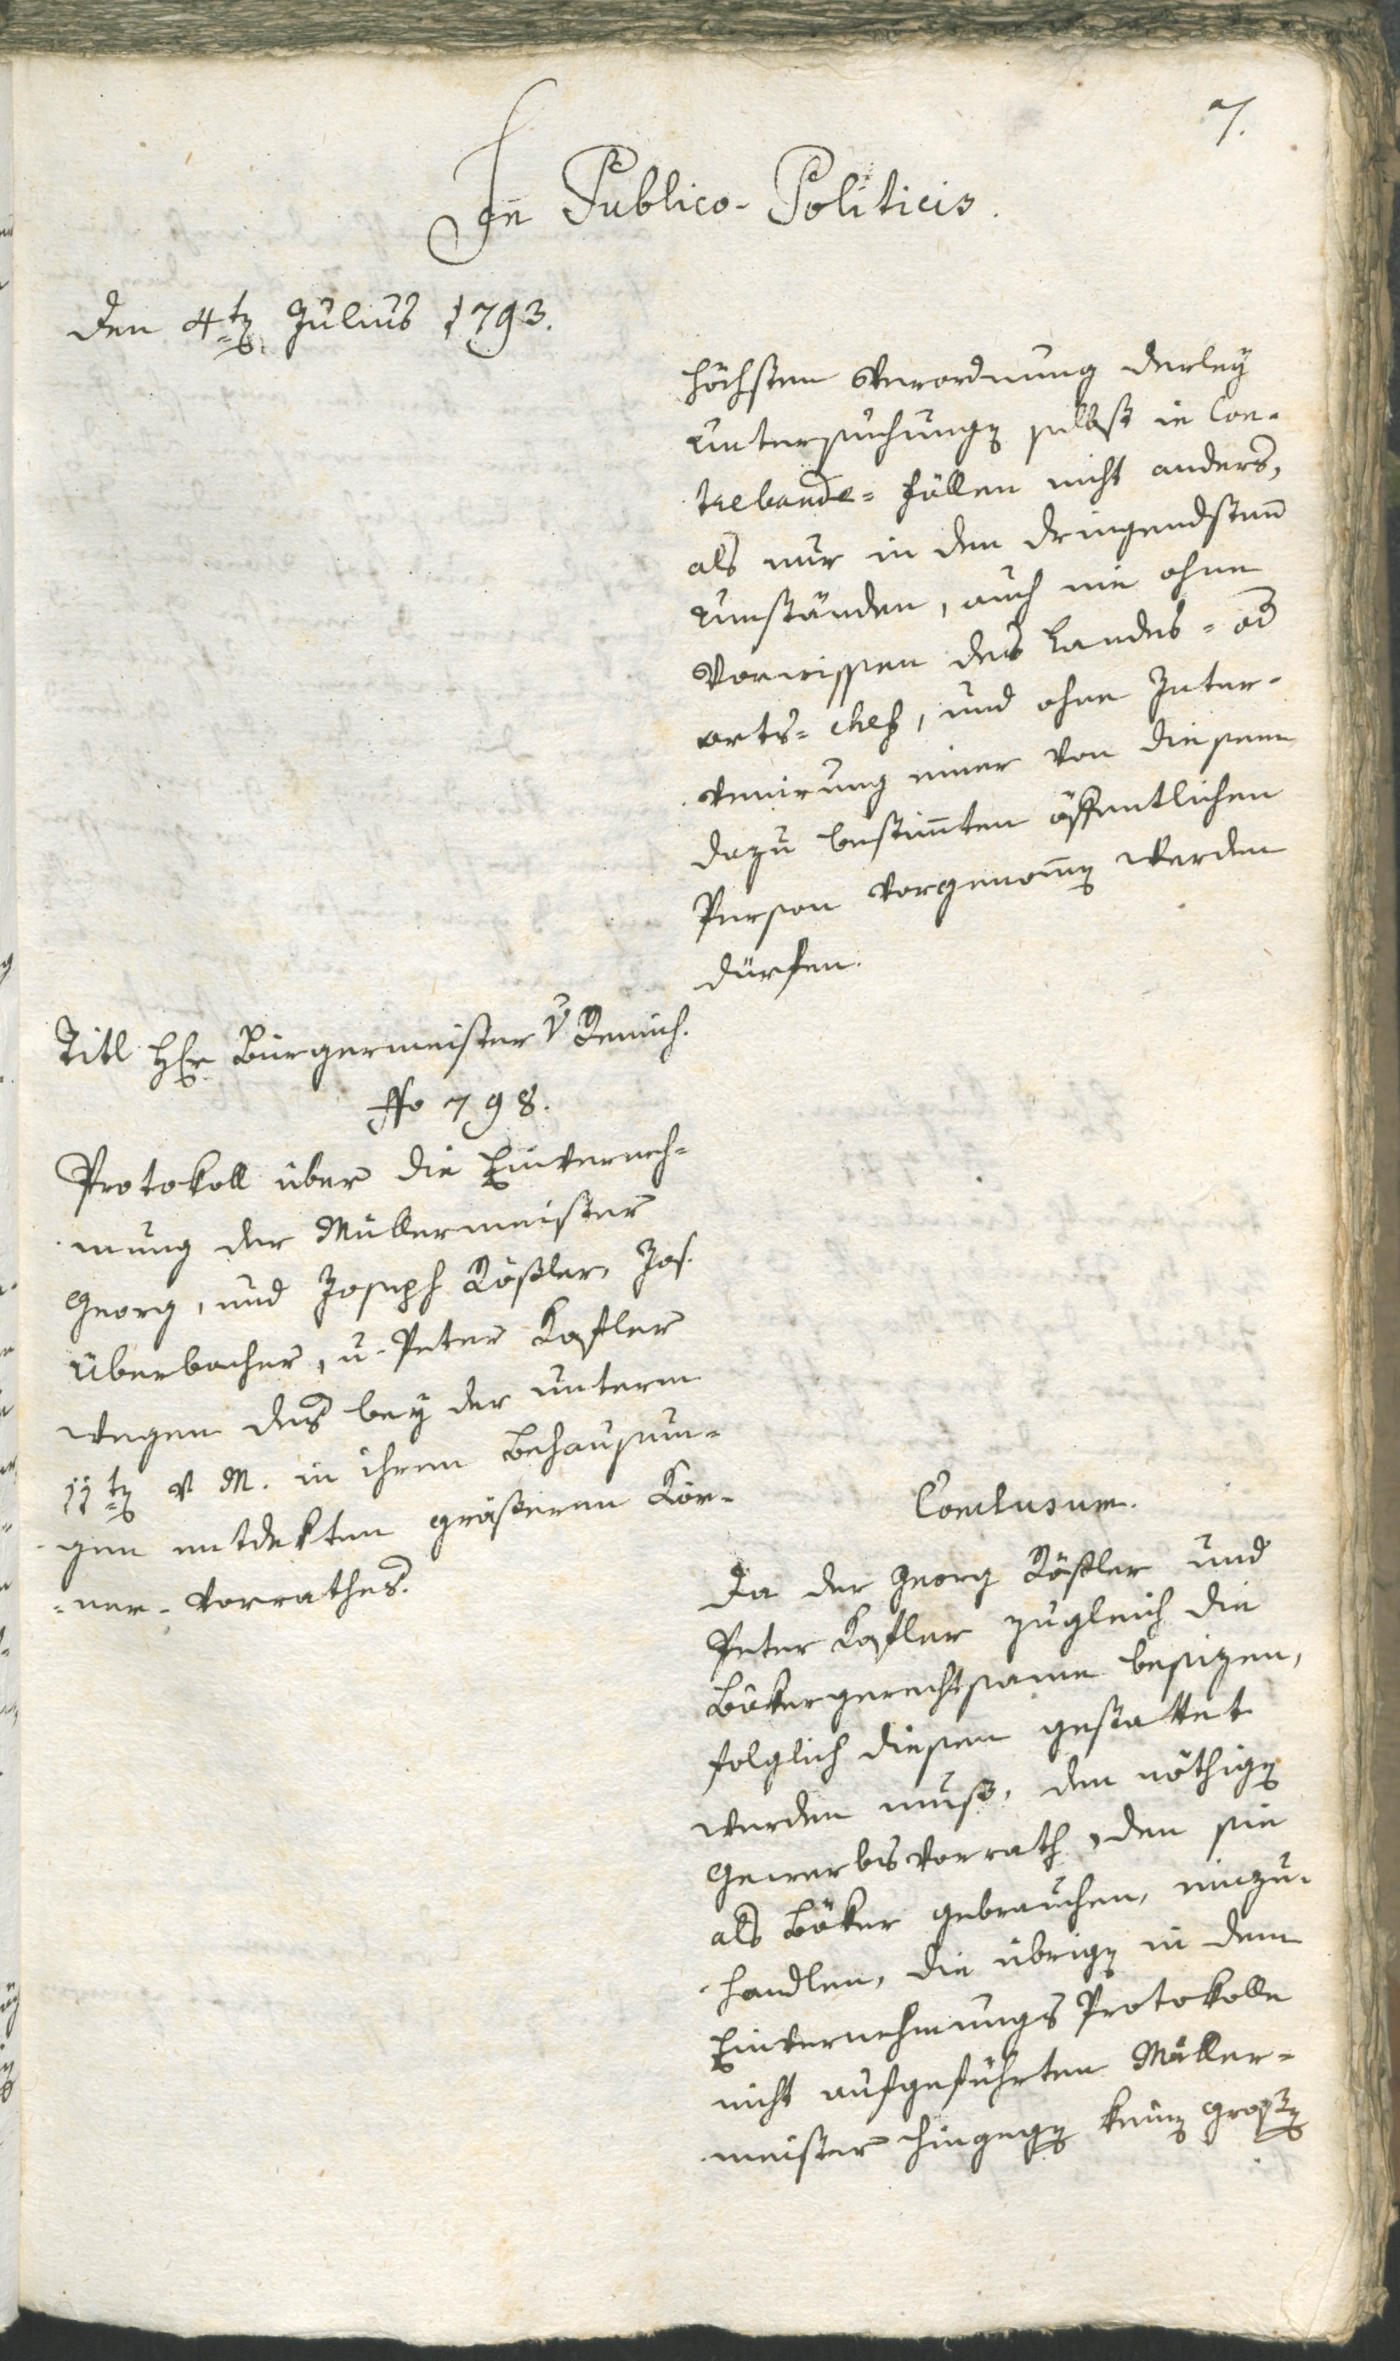 7.
In Publico-Politicis.
den 4ten Julius 1793.
höchsten Verordnung derley
Untersuchungen selbst in Con-
trebande-Fällen nicht anders,
als nur in den dringendsten
Umständen, auch nie ohne
Vorwissen des Landes- od
orts-chefs, und ohne Inter-
venirung einer von diesem
dazu bestimten öffentlichen
Person vorgenomen werden
dürfen.
Titl Hr Bürgermeister v Remich.
No 798.
Protokoll über die Einverneh-
mung der Müllermeister
Georg, und Joseph Rößler, Jos.
Überbacher, u. Peter Kofler
wegen des bey der unterm
11ten v M. in ihren Behausun-
gen entdekten größeren Kör-
ner-Vorrathes.
Conclusum.
Da der Georg Rößler und
Peter Kofler zugleich die
Bökergerechtsame besizen,
folglich diesen gestattet
werden muß, den nöthigen
Gewerbsvorrath, den sie
als Böker gebrauchen, einzu-
handlen, die übrigen in dem
Einvernehmungs Protokolle
nicht aufgeführten Müller-
meister hingegen keine große